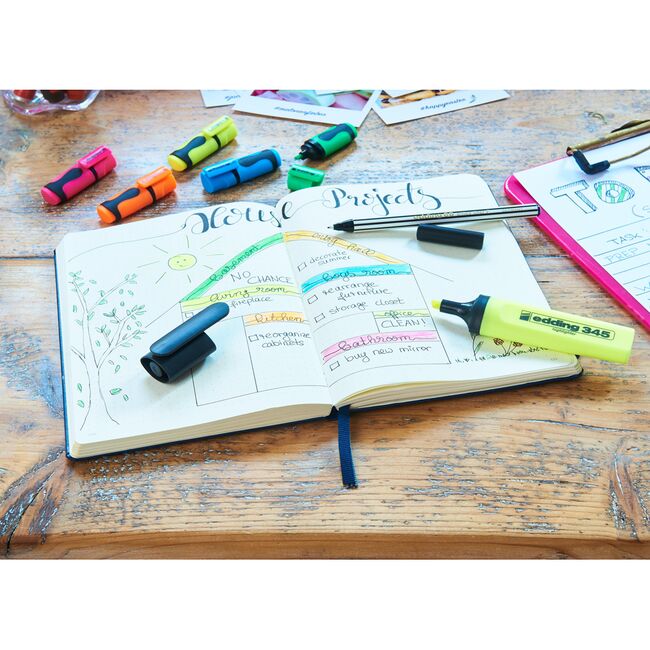 #happyeaster
House Projects
TO
TASK
PREP
basement
NO CHANCE
living room
fireplace
kitchen
reorganize
cabinets
decorate
summer
boys room
rearrange
furniture
storage closet
office
CLEAN!
bathroom
buy new mirror
edding 345
highlighter